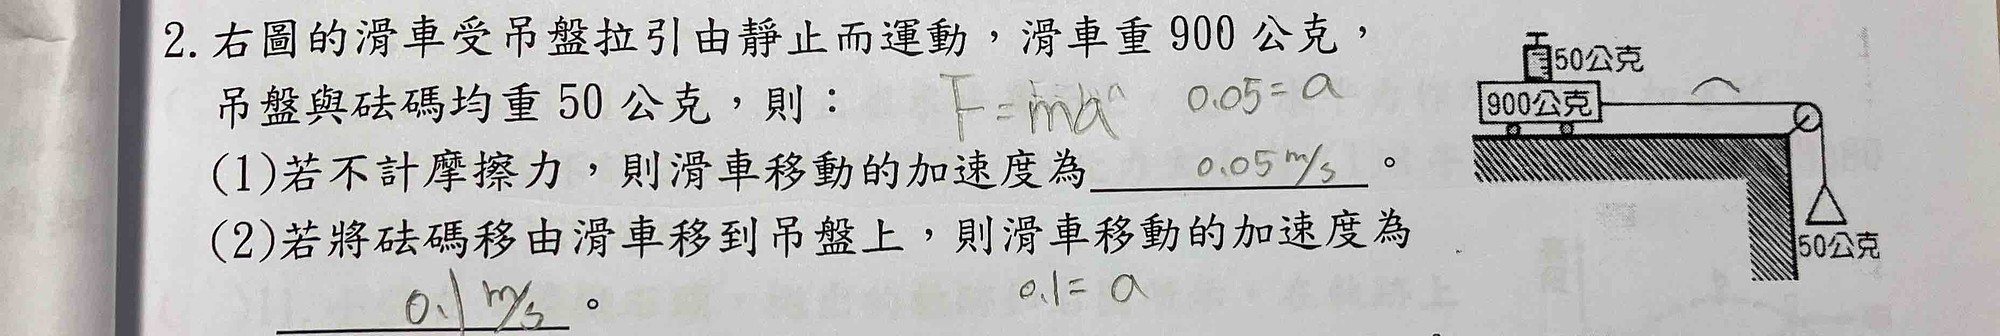 2. 右圖的滑車受吊盤拉引由靜止而運動，滑車重 900 公克，
吊盤與砝碼均重 50 公克，則：
F=ma 0.05=a
(1)若不計摩擦力，則滑車移動的加速度為 0.05 m/s 。
(2)若將砝碼移由滑車移到吊盤上，則滑車移動的加速度為
0.1 m/s 。
0.1=a
50公克
900公克
50公克